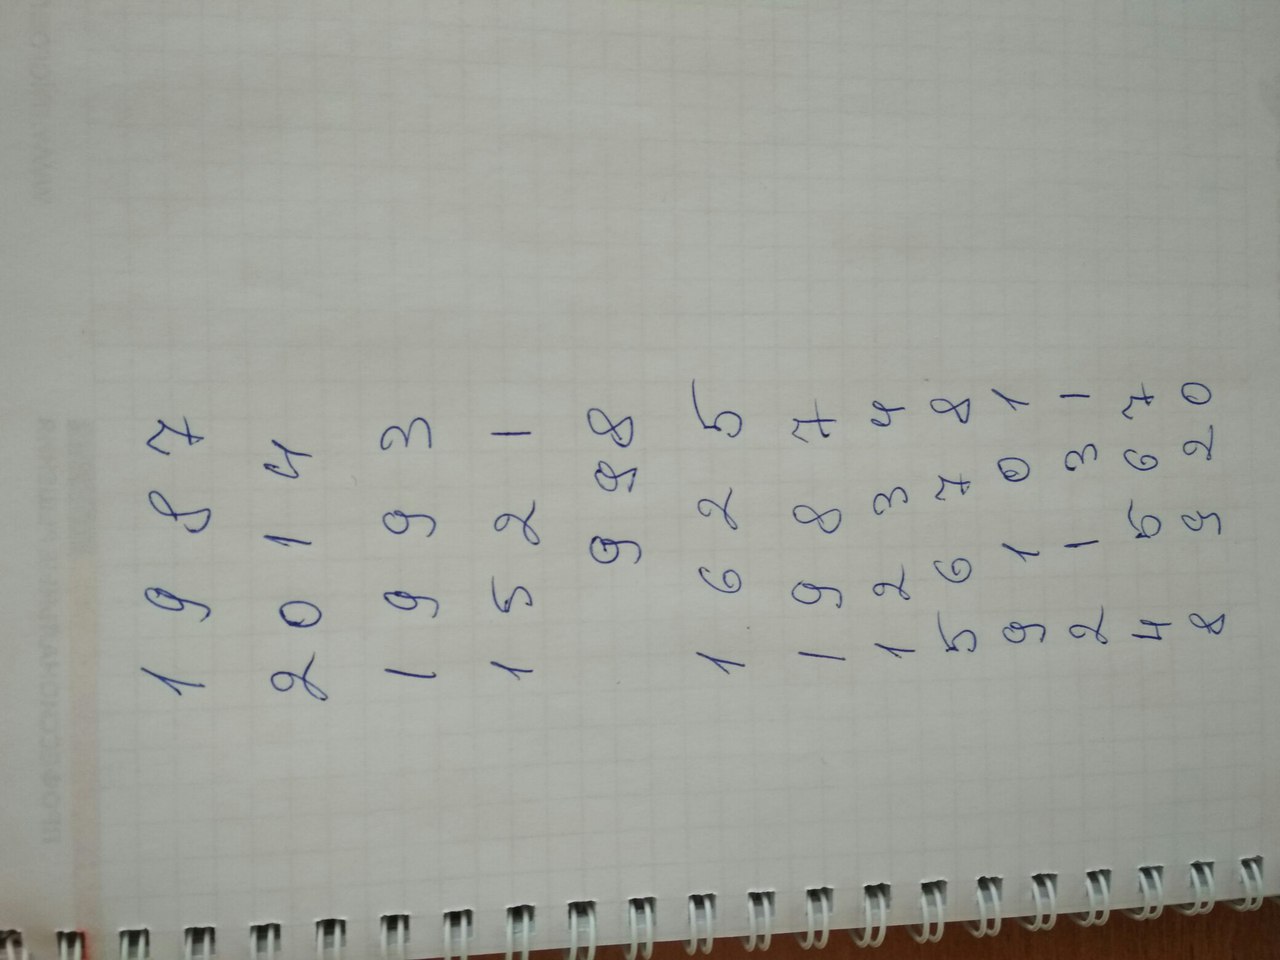 1987
2014
1993
1521
998
1625
1987
1234
5678
9101
2131
4567
8920